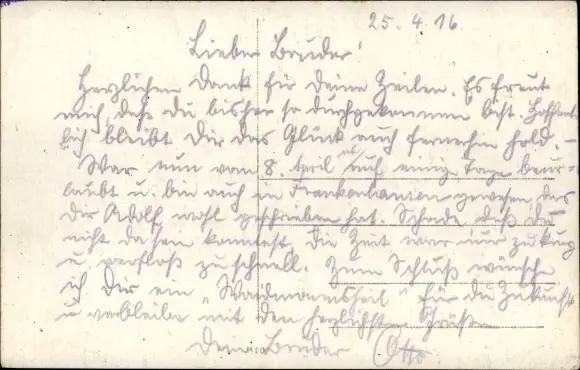 25.4.16.
Lieber Bruder!
Herzlichen Dank für Deine Zeilen. Es freut
mich, daß du bisher so durchgekommen bist. Hoffent-
lich bleibt Dir das Glück auch fernerhin hold. –
War nun vom 8. April auf einige Tage beur-
laubt u. bin auch in gewesen, das
Dir Adolf wohl geschrieben hat. Schade daß du
nicht da sein konntest. Die Zeit war nur zu kurz
u. verfloß zu schnell. Zum Schluß wünsche
ich Dir ein „Waidmannsheil" für die Zukunft
u. verbleibe mit den herzlichsten Grüßen
Dein Bruder Otto